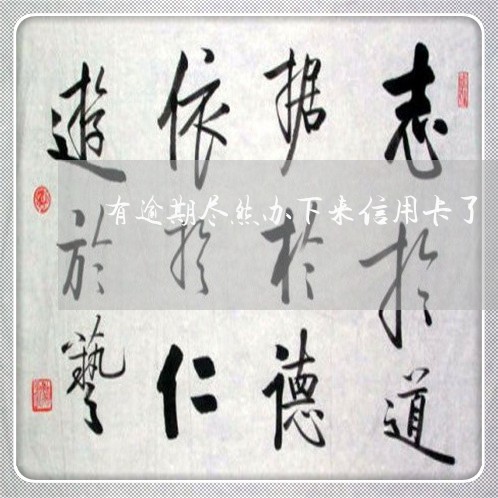 志於道
据於德
依於仁
遊於藝
有逾期尽然办下来信用卡了